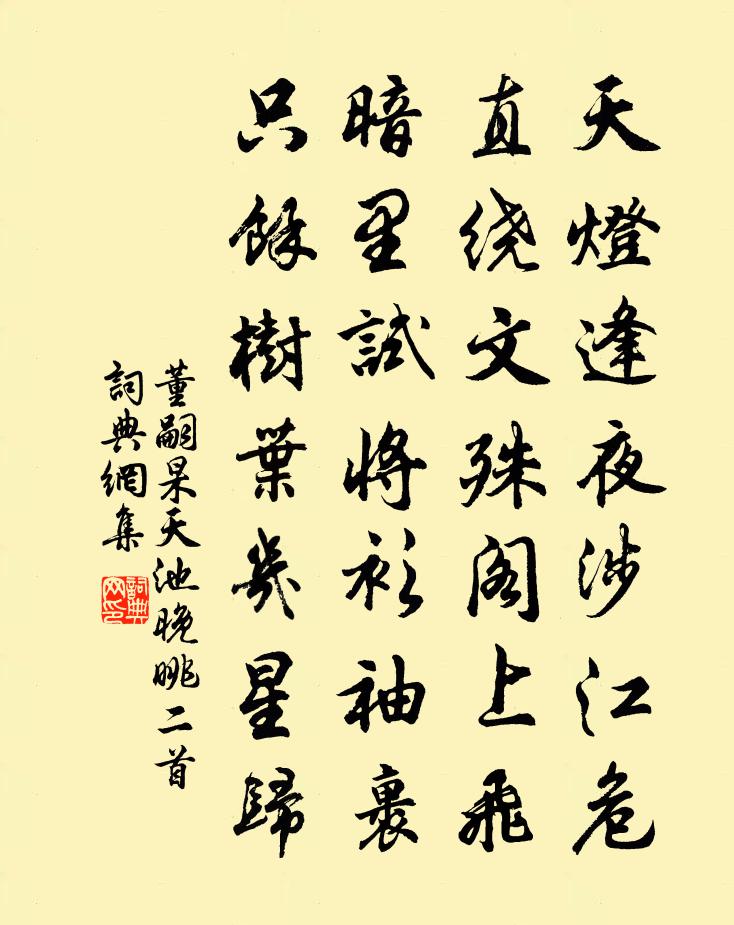 天燈逢夜涉江危
直绕文殊阁上飛
暗里試將衫袖裹
只餘樹葉幾星歸
董嗣杲天池晚眺二首
詞典網集
詞典網印